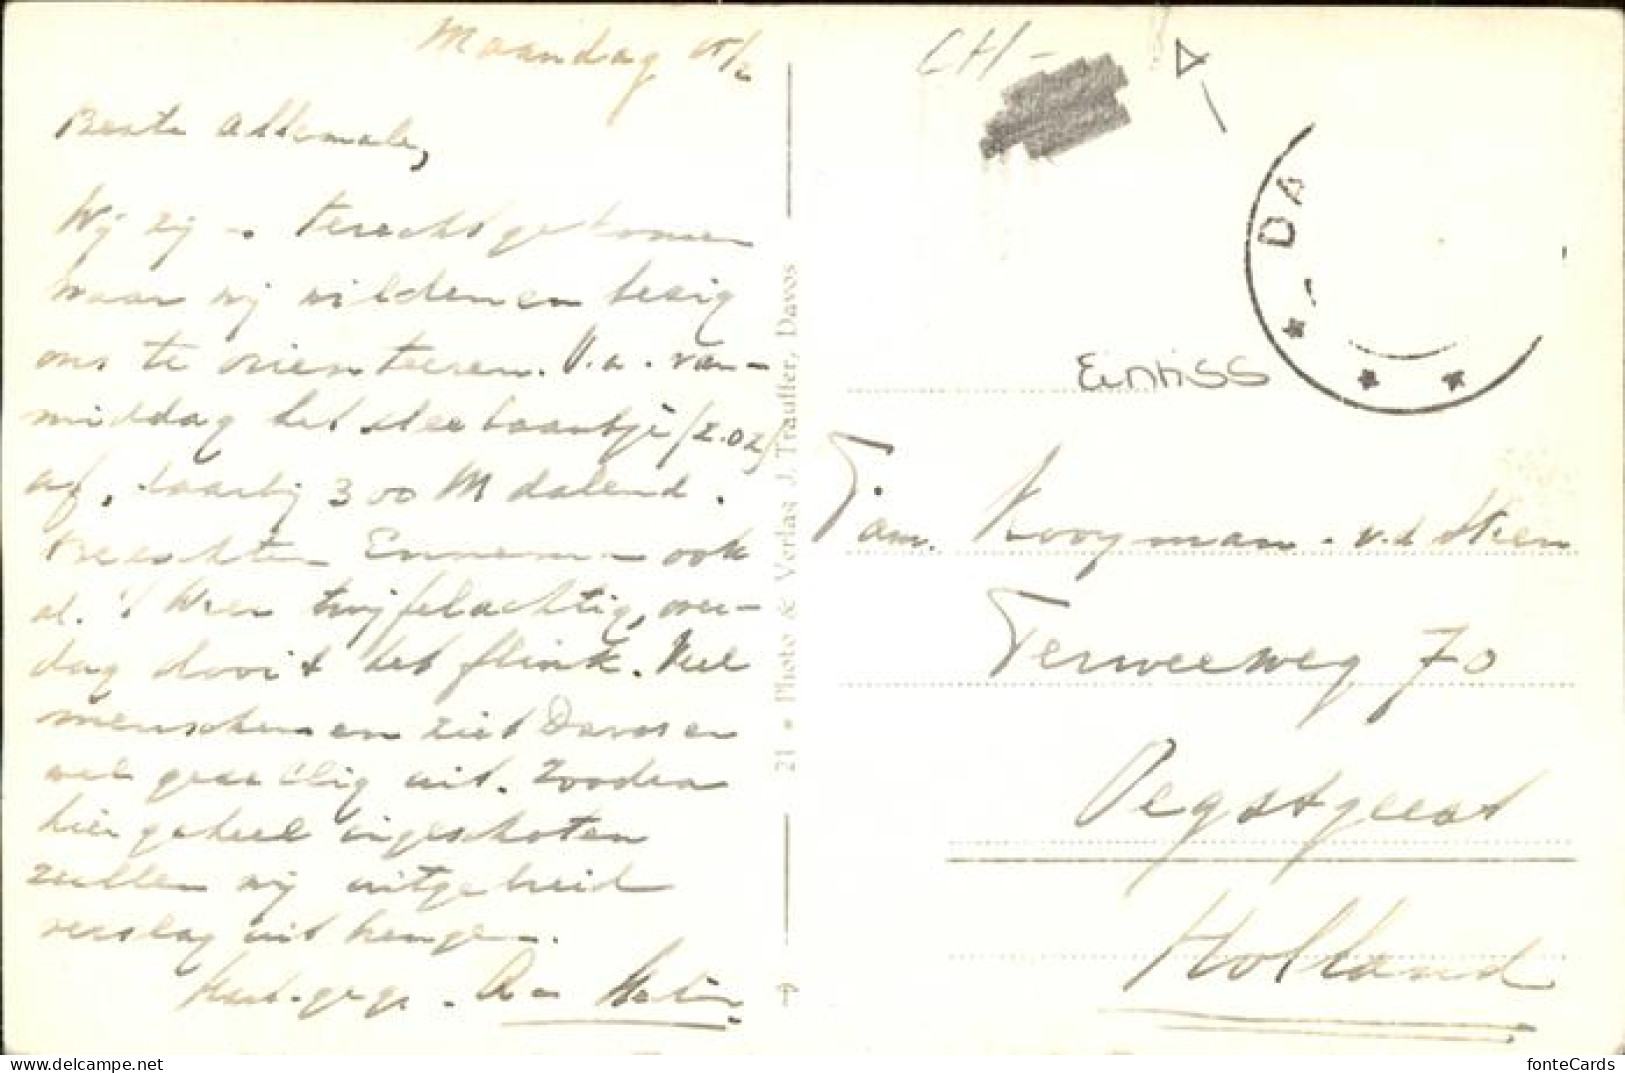 Maandag 15/2
Beste allemale,
Wij zijn terechtgekomen
waar wij wilden en bezig
ons te orienteeren. V.a. van-
middag het slee baantje (2.02)
af, daarbij 300 M dalend.
al. 't Weer twijfelachtig, over-
dag dooit het flink. Veel
menschen en ziet Davos er
wel gezellig uit. Zoodra
hier geheel ingeschoten
zullen wij uitgebreid
verslag uit brengen.
Hart. gegr.
21 * Photo & Verlag J. Trauffer, Davos
CH-
DA
Einriss
Fam. Kooyman - v.d. Steen
Terweeweg 70
Oegstgeest
Holland
fonteCards